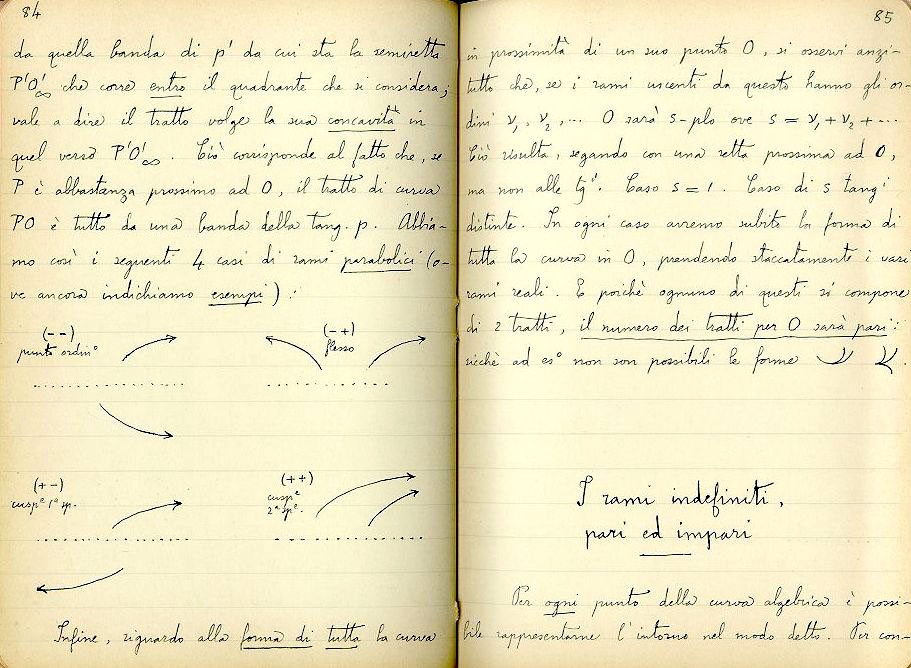 84
da quella banda di p' da cui sta la semiretta
P'O'∞ che corre entro il quadrante che si considera;
vale a dire il tratto volge la sua concavità in
quel verso P'O'∞. Ciò corrisponde al fatto che, se
P è abbastanza prossimo ad O, il tratto di curva
PO è tutto da una banda della tang. p. Abbia-
mo così i seguenti 4 casi di rami parabolici (o-
ve ancora indichiamo esempi):
(--)
punto ordinº
(-+)
flesso
(+-)
cuspe 1ª sp.
(++)
cuspe
2ª spe.
Infine, riguardo alla forma di tutta la curva
85
in prossimità di un suo punto O, si osservi anzi-
tutto che, se i rami uscenti da questo hanno gli or-
dini ν1, ν2, ... O sarà s-plo ove s = ν1 + ν2 + ...
Ciò risulta, segando con una retta prossima ad O,
ma non alle tgi. Caso s = 1. Caso di s tangi
distinte. In ogni caso avremo subito la forma di
tutta la curva in O, prendendo staccatamente i vari
rami reali. E poichè ognuno di questi si compone
di 2 tratti, il numero dei tratti per O sarà pari:
sicchè ad esº non son possibili le forme
I rami indefiniti,
pari ed impari
Per ogni punto della curva algebrica è possi-
bile rappresentarne l'intorno nel modo detto. Per con-